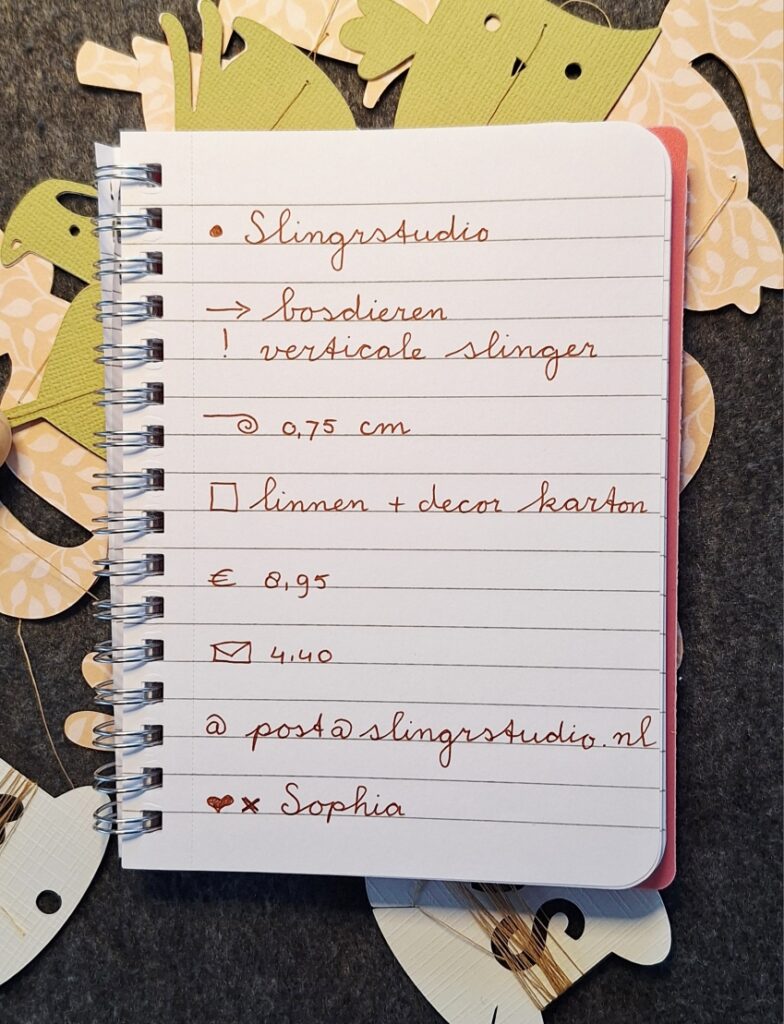 • Slingrstudio
→ bosdieren
! verticale slinger
0,75 cm
□ linnen + decor karton
€ 8,95
✉ 4,40
@ post@slingrstudio.nl
♥ x Sophia